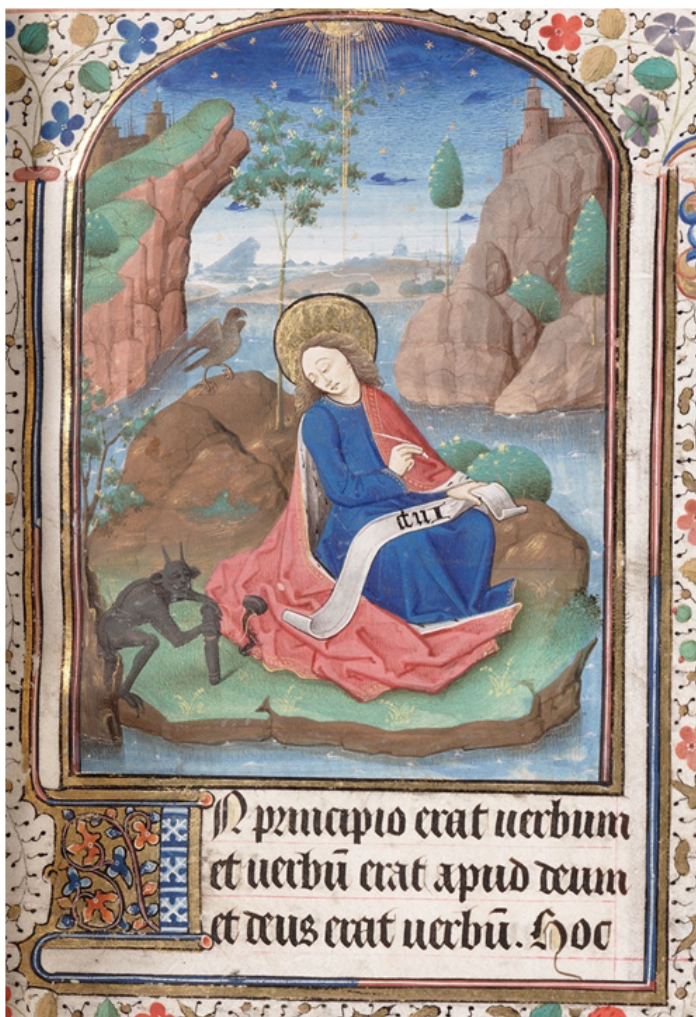 IN principio erat uerbum
et uerbū erat apud deum
et deus erat uerbū. Hoc